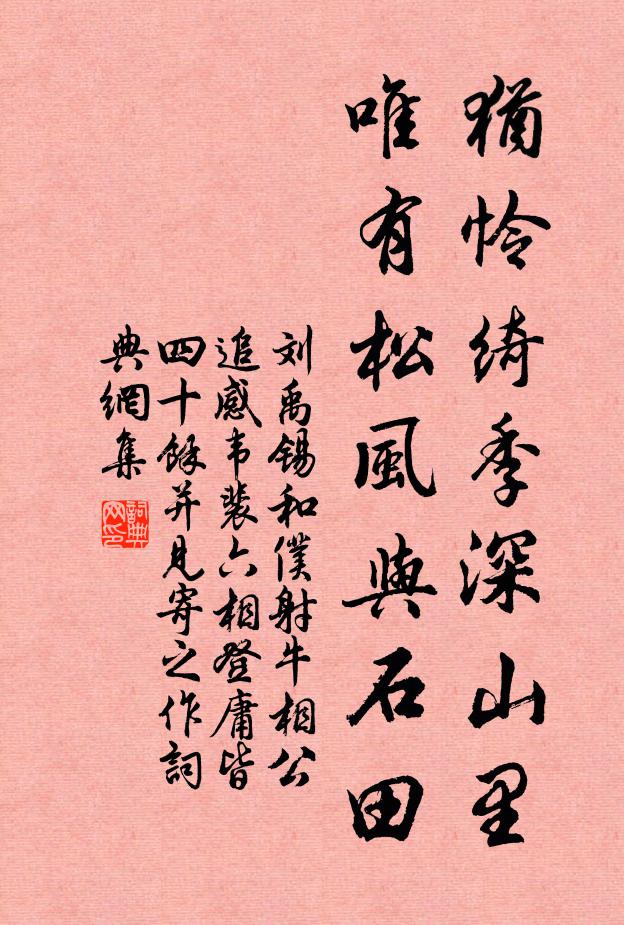 猶怜綺季深山里
唯有松風與石田
刘禹锡和僕射牛相公
追感韦裴六相登庸皆
四十餘并見寄之作詞
典網集
詞典网印